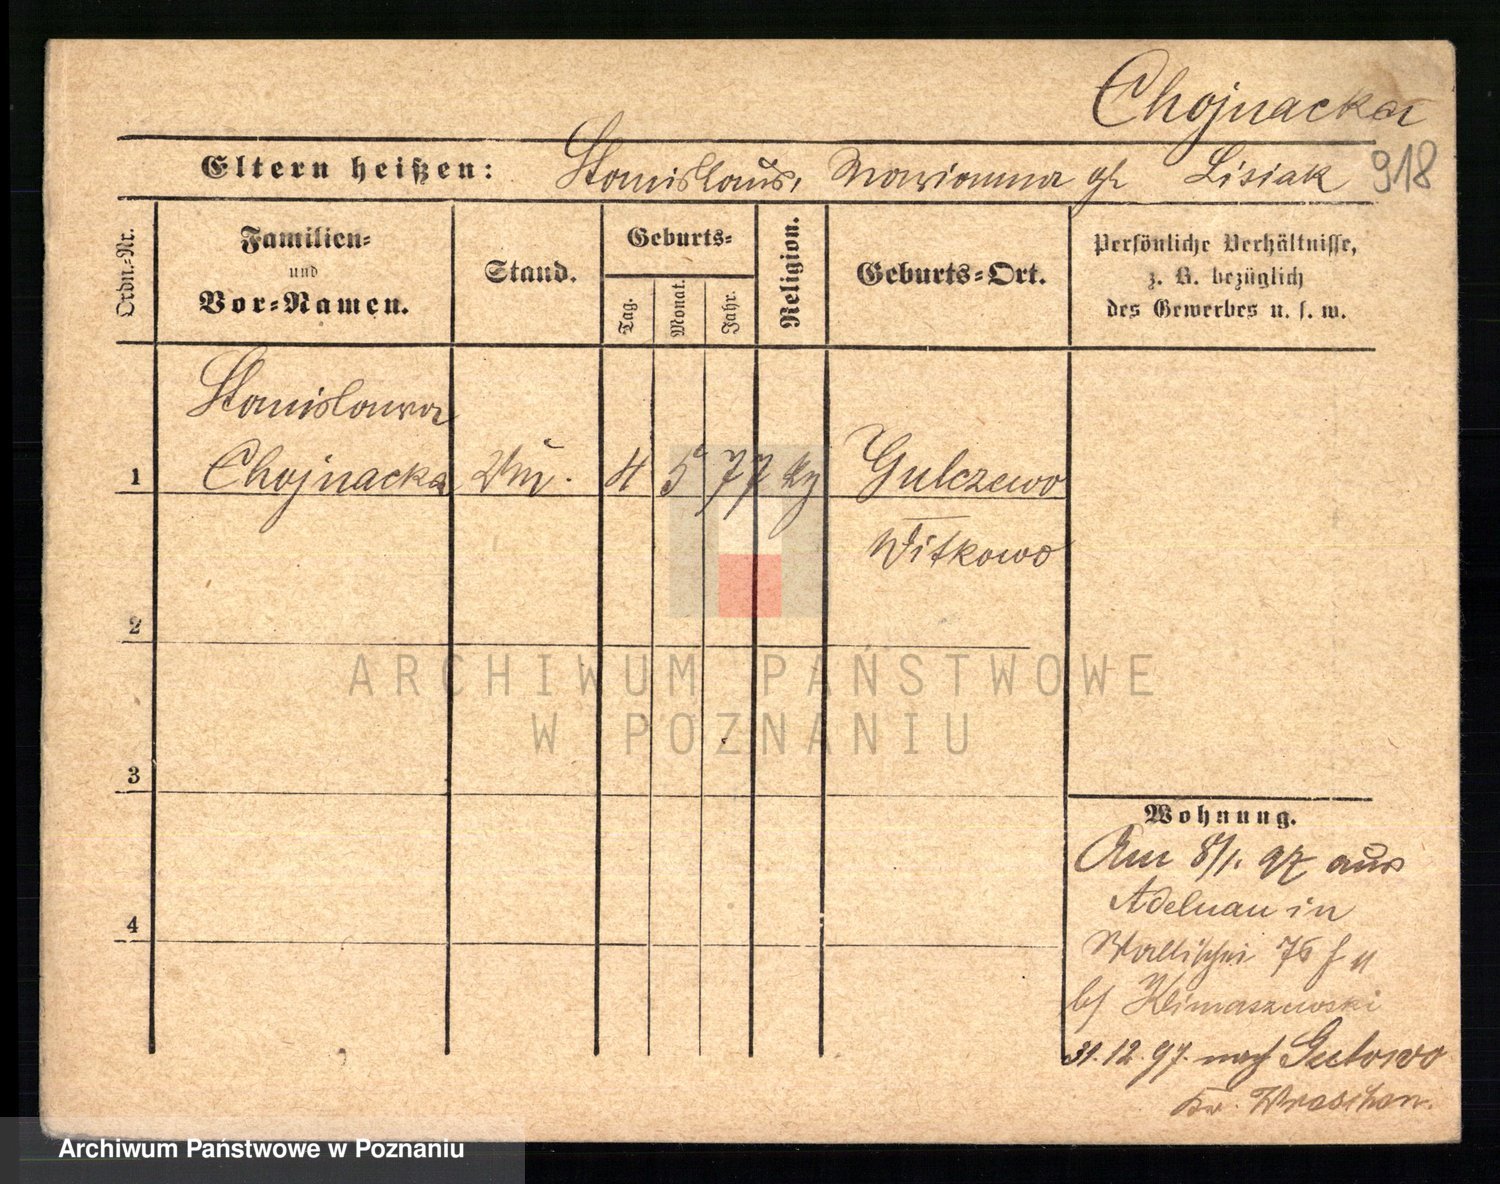 Chojnacka
Eltern heißen: Stanislaus, Marianna gb Lisiak 918
Ordn.-Nr.
Familien-
und
Vor-Namen.
Stand.
Geburts-
Tag.
Monat.
Jahr.
Religion.
Geburts-Ort.
Persönliche Verhältnisse,
z. B. bezüglich
des Gewerbes u. s. w.
Stanislawa
1 Chojnacka 4 5 77 Gulczewo
Witkowo
2
3
4
Wohnung.
Am 8/1. 97 aus
Adelnau in
Wallischei 75
bf Klimaszewski
31.12.97. nach Gutowo
Kr. Wreschen.
ARCHIWUM PAŃSTWOWE
W POZNANIU
Archiwum Państwowe w Poznaniu